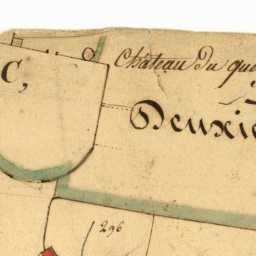 Château du que
C,
Deuxie
296